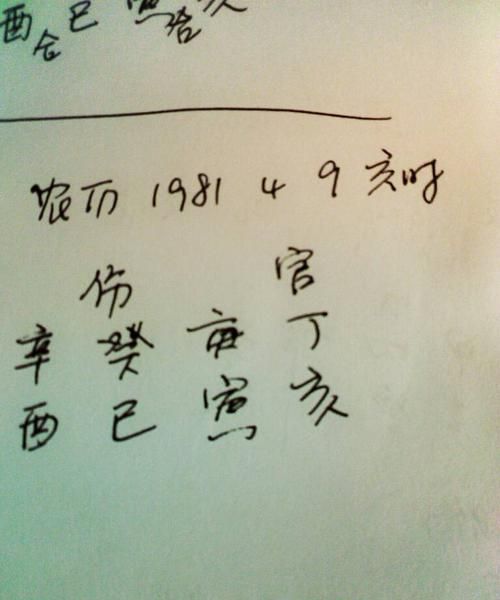 酉 巳 寅 亥
合 合
农历 1981 4 9 亥时
伤 官
辛 癸 庚 丁
酉 巳 寅 亥